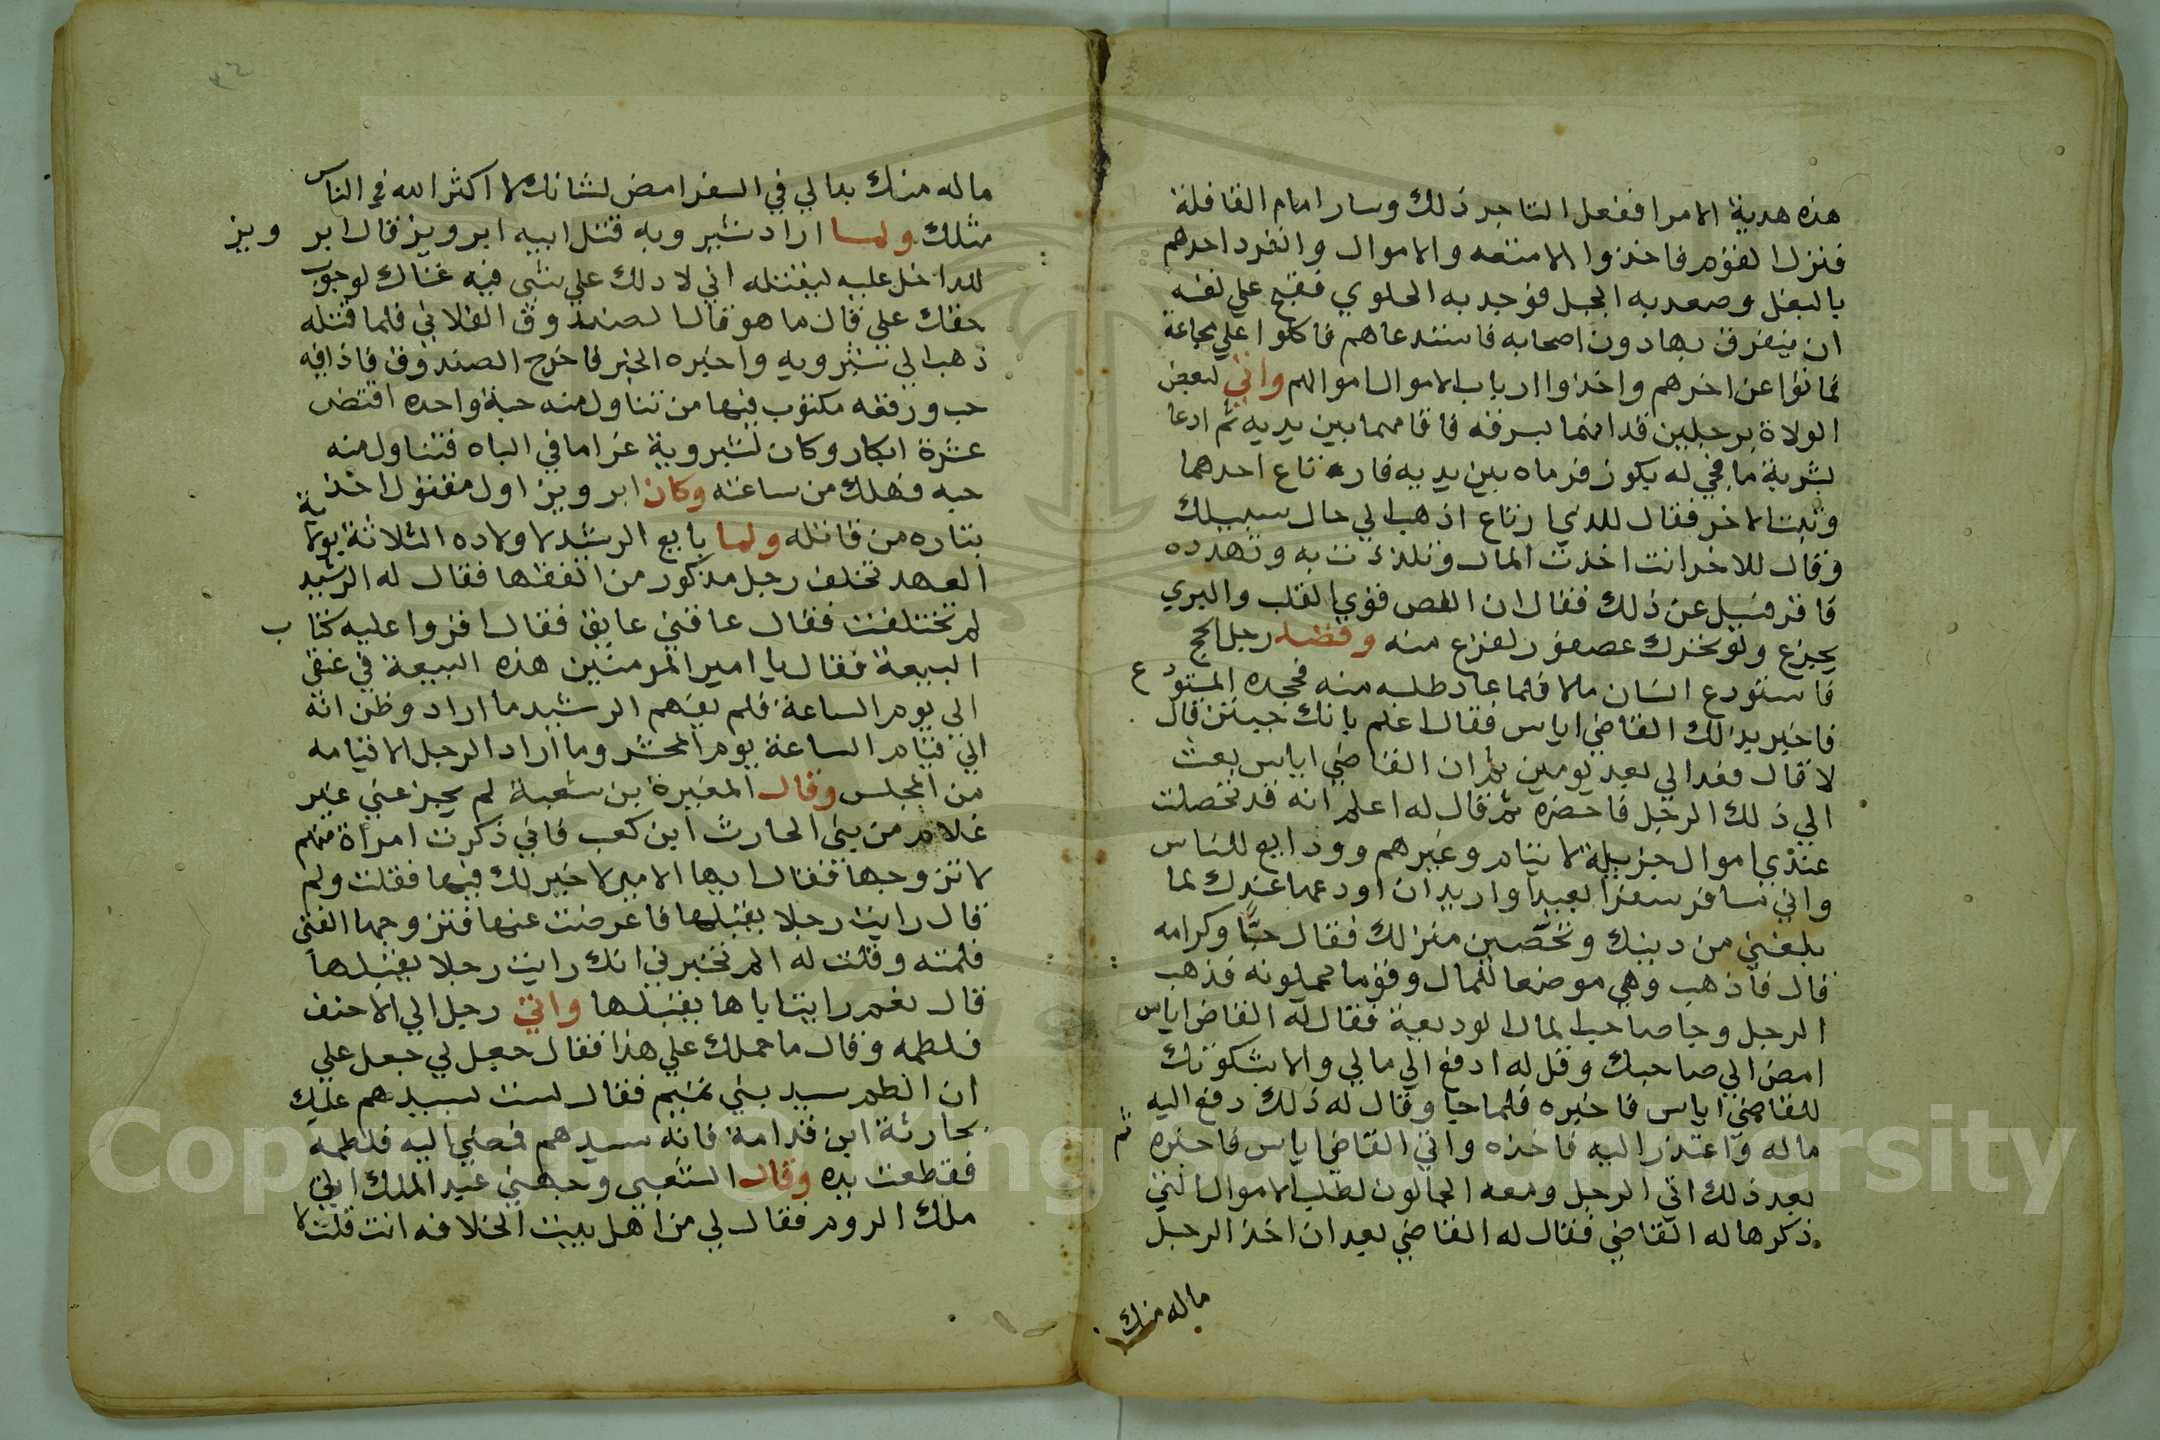 هذه هدية الامرا ففعل التاجر ذلك وسار امام القافلة
فنزل القوم فاخذوا الامتعه والاموال وانفرد احدهم
بالبغل وصعد به الجبل فوجد به الحلوي فقبح علي نفسه
ان ينفرق بها دون اصحابه فاستدعاهم فاكلوا علي مجاعة
فماتوا عن اخرهم واخذوا ارباب الاموال اموالهم واتي لبعض
الولاة برجلين قد اتهما بسرقه فاقامهما بين يديه ثم ادعا
بشربة ما فجي له بكوز فرماه بين يديه فارتاع احدهما
وثبت الاخر فقال للذي ارتاع اذهب الي حال سبيلك
وقال للاخر انت اخذت المال وتلذذت به وتهدده
فاقر فسيل عن ذلك فقال ان اللص قوي القلب والبري
يجزع ولو تحرك عصفور لفزع منه وقصد رجل الحج
فاستودع انسان مالا فلما عاد طلبه منه فجحده المستودع
فاخبر بذلك القاضي اياس فقال اعلم بانك جيتني قال
لا قال فعد الي بعد يومين ثم ان القاضي اياس بعث
الي ذلك الرجل فاحضره ثم قال له اعلم انه قد تحصلت
عندي اموال جزيلة لايتام وغيرهم وودايع للناس
واني مسافر سفرا بعيدا واريد ان اودعها عندك لما
بلغني من دينك وتحصين منزلك فقال حبا وكرامه
قال فاذهب وهي موضعا للمال وقوما يحملونه فذهب
الرجل وجا صاحب المال الوديعة فقال له القاضي اياس
امض الي صاحبك وقل له ادفع الي مالي والا شكوتك
للقاضي اياس فاخبره فلما جا وقال له ذلك دفع اليه
ماله واعتذر اليه فاخذه واتي القاضي اياس فاخبره ثم
بعد ذلك اتي الرجل ومعه الحمالون لطلب الاموال التي
ذكرها له القاضي فقال له القاضي بعد ان اخذ الرجل
ماله منك
ماله منك بدا لي في السفر امض لشانك لا اكثر الله في الناس
مثلك ولما اراد شيرويه قتل ابيه ابرويز قال ابرويز
للداخل عليه ليقتله اني لادلك علي شي فيه غناك لوجوب
حقك علي قال ما هو قال الصندوق الفلاني فلما قتله
ذهب الي شيرويه واخبره الخبر فاخرج الصندوق فاذا فيه
حب ورقعه مكتوب فيها من تناول منه حبة واحده افتض
عشرة ابكار وكان لشيروية غراما في الباه فتناول منه
حبه فهلك من ساعته وكان ابرويز اول مقتول اخذ
بثاره من قاتله ولما بايع الرشيد لاولاده الثلاثة بولاية
العهد تخلف رجل مذكور من الفقها فقال له الرشيد
لم تختلفت فقال عاقني عايق فقال اقروا عليه كتاب
البيعة فقال يا امير المومنين هذه البيعة في عنقي
الي يوم الساعة فلم يفهم الرشيد ما اراد وظن انه
الي قيام الساعة يوم المحشر وما اراد الرجل الا قيامه
من المجلس وقال المغيرة بن شعبة لم يجزعني غير
غلام من بني الحارث ابن كعب فاني ذكرت امراة منهم
لاتزوجها فقال ايها الامير لا خير لك فيها فقلت ولم
قال رايت رجلا يقبلها فاعرضت عنها فتزوجها الفتي
فلمته وقلت له الم تخبرني انك رايت رجلا يقبلها
قال نعم رايت اباها يقبلها واتي رجل الي الاحنف
فلطمه وقال ما حملك علي هذا فقال جعل لي جعل علي
ان الطم سيد بني تميم فقال لست بسيدهم عليك
بحارثة ابن قدامة فانه سيدهم فمضي اليه فلطمه
فقطعت يده وقال الشعبي وجهني عبد الملك الي
ملك الروم فقال لي من اهل بيت الخلافه انت قلت لا
Copyright © King Saud University